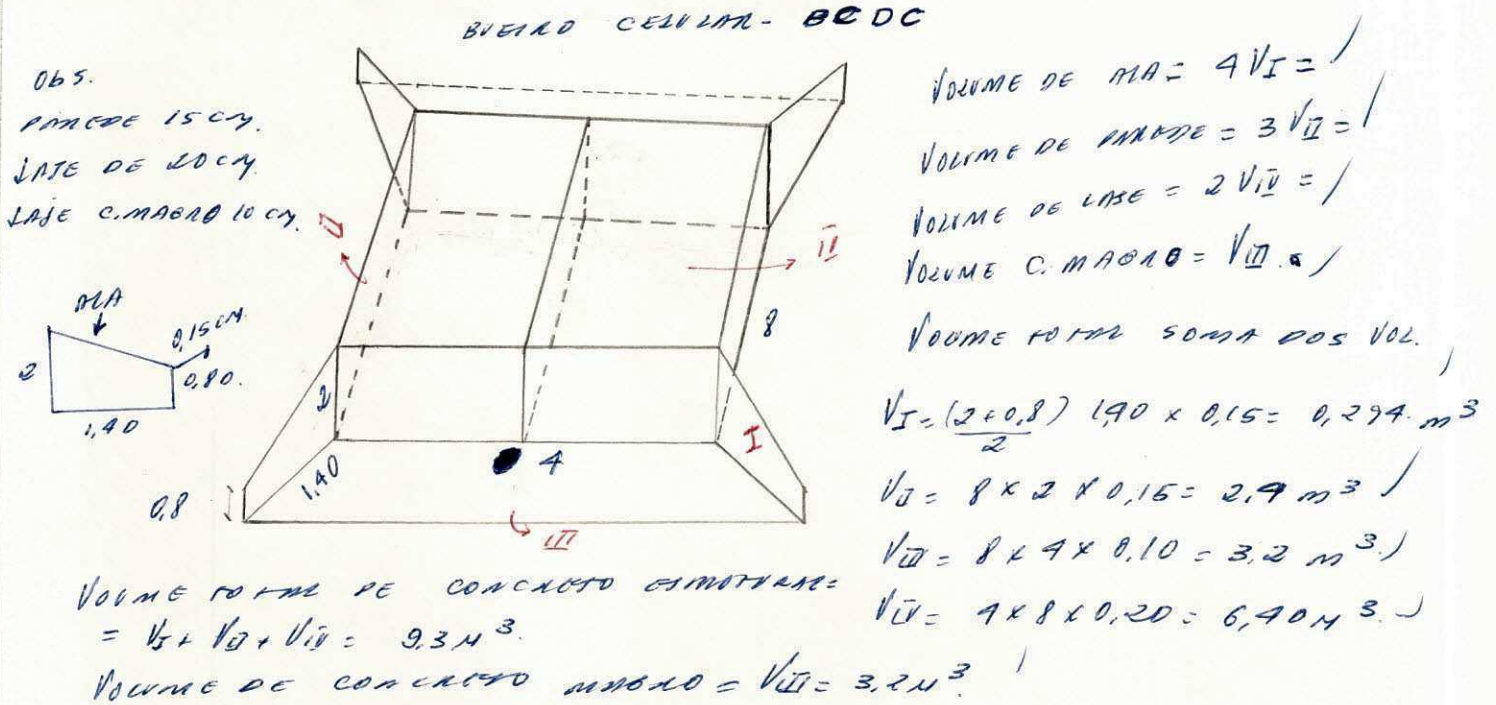 BUEIRO CELULAR - BCDC
Obs.
PAREDE 15 CM.
LAJE DE 20 CM.
LAJE C. MAGRO 10 CM.
ALA
0,15 CM.
2
0,80.
1,40
II
II
8
2
1,40
4
I
0,8
III
VOLUME DE ALA = 4 VI =
VOLUME DE PAREDE = 3 VII =
VOLUME DE LAJE = 2 VIV =
VOLUME C. MAGRO = VIII =
VOUME TOTAL SOMA DOS VOL.
VI = (2 + 0,8) 1,40 x 0,15 = 0,294 m³
2
VII = 8 x 2 x 0,15 = 2,4 m³
VIII = 8 x 4 x 0,10 = 3,2 m³
VIV = 4 x 8 x 0,20 = 6,40 M³.
VOUME TOTAL DE CONCRETO ESTRUTURAL =
= VI + VII + VIV = 9,3 M³.
VOLUME DE CONCRETO MAGRO = VIII = 3,2 M³.